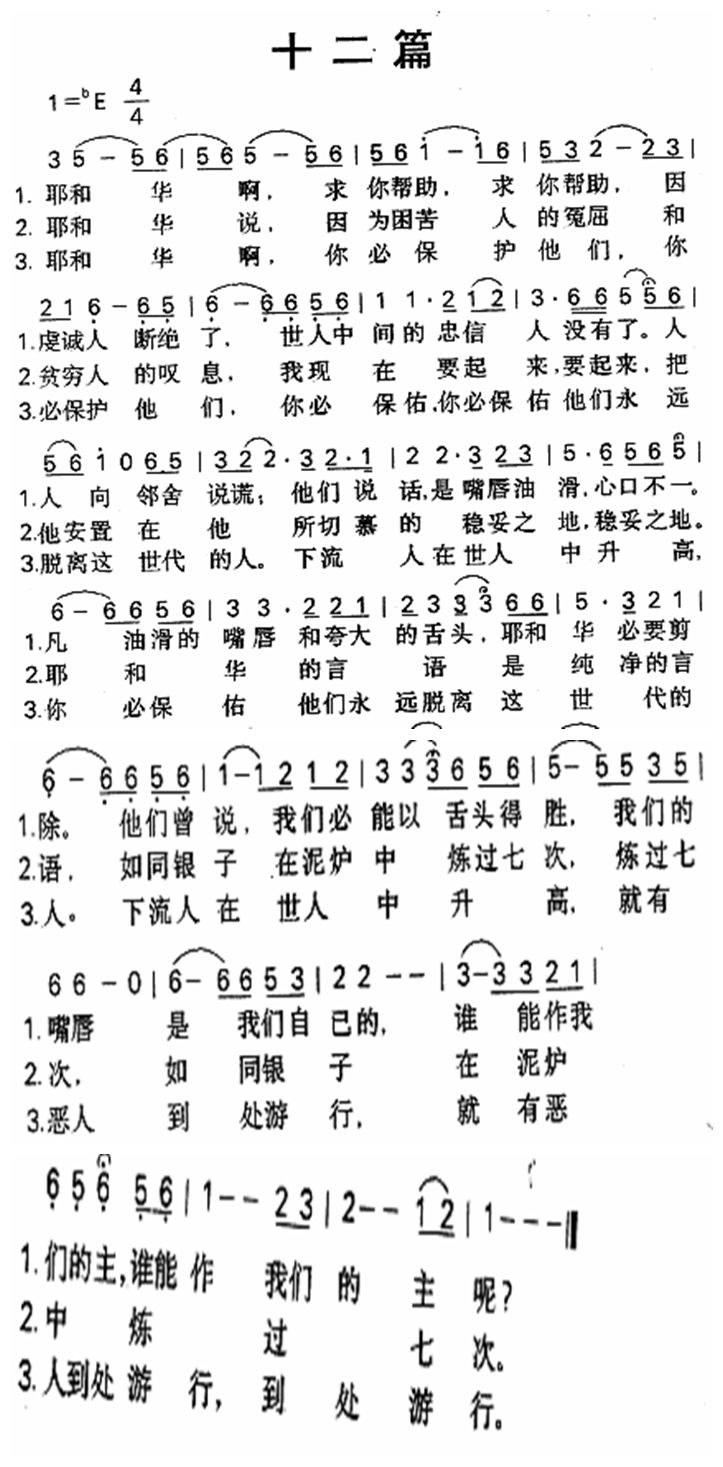 十二篇
1=ᵇE 4/4
3 5 - 5 6 | 5 6 5 - 5 6 | 5 6 i - i 6 | 5 3 2 - 2 3 |
1. 耶和 华 啊, 求 你帮助, 求 你帮助, 因
2. 耶和 华 说, 因 为困苦 人 的冤屈 和
3. 耶和 华 啊, 你 必 保 护 他 们, 你
2 1 6 - 6 5 | 6 - 6 6 5 6 | 1 1 · 2 1 2 | 3 · 6 6 5 5 6 |
1.虔诚人 断绝 了, 世人中 间的 忠信 人 没有了。人
2.贫穷人 的叹 息, 我现 在 要起 来,要起来, 把
3.必保护 他 们, 你必 保佑,你必保 佑他们永 远
5 6 i 0 6 5 | 3 2 2 · 3 2 · 1 | 2 2 · 3 2 3 | 5 · 6 5 6 5 |
1.人 向 邻舍 说谎; 他们 说 话,是嘴唇油 滑,心口不一。
2.他安置 在 他 所切慕 的 稳妥之 地,稳妥之地。
3.脱离这 世代 的人。下流 人在世人 中升 高,
6 - 6 6 5 6 | 3 3 · 2 2 1 | 2 3 3 3 6 6 | 5 · 3 2 1 |
1.凡 油滑的 嘴唇 和夸大 的舌头,耶和 华 必要剪
2.耶 和 华 的言 语 是 纯 净的言
3.你 必保 佑 他们永 远脱离 这 世 代的
6 - 6 6 5 6 | 1 - 1 2 1 2 | 3 3 3 6 5 6 | 5 - 5 5 3 5 |
1.除。 他们曾 说, 我们必 能以 舌头得 胜, 我们的
2.语, 如同银 子 在泥炉 中 炼过七 次, 炼过七
3.人。 下流人 在 世人 中 升 高, 就有
6 6 - 0 | 6 - 6 6 5 3 | 2 2 - - | 3 - 3 3 2 1 |
1.嘴唇 是 我们自 己的, 谁 能作我
2.次, 如 同银 子 在 泥炉
3.恶人 到 处游 行, 就 有恶
6 5 6 5 6 | 1 - - 2 3 | 2 - - 1 2 | 1 - - - ‖
1.们的主,谁能 作 我们 的 主 呢?
2.中 炼 过 七 次。
3.人到处 游 行, 到 处 游 行。